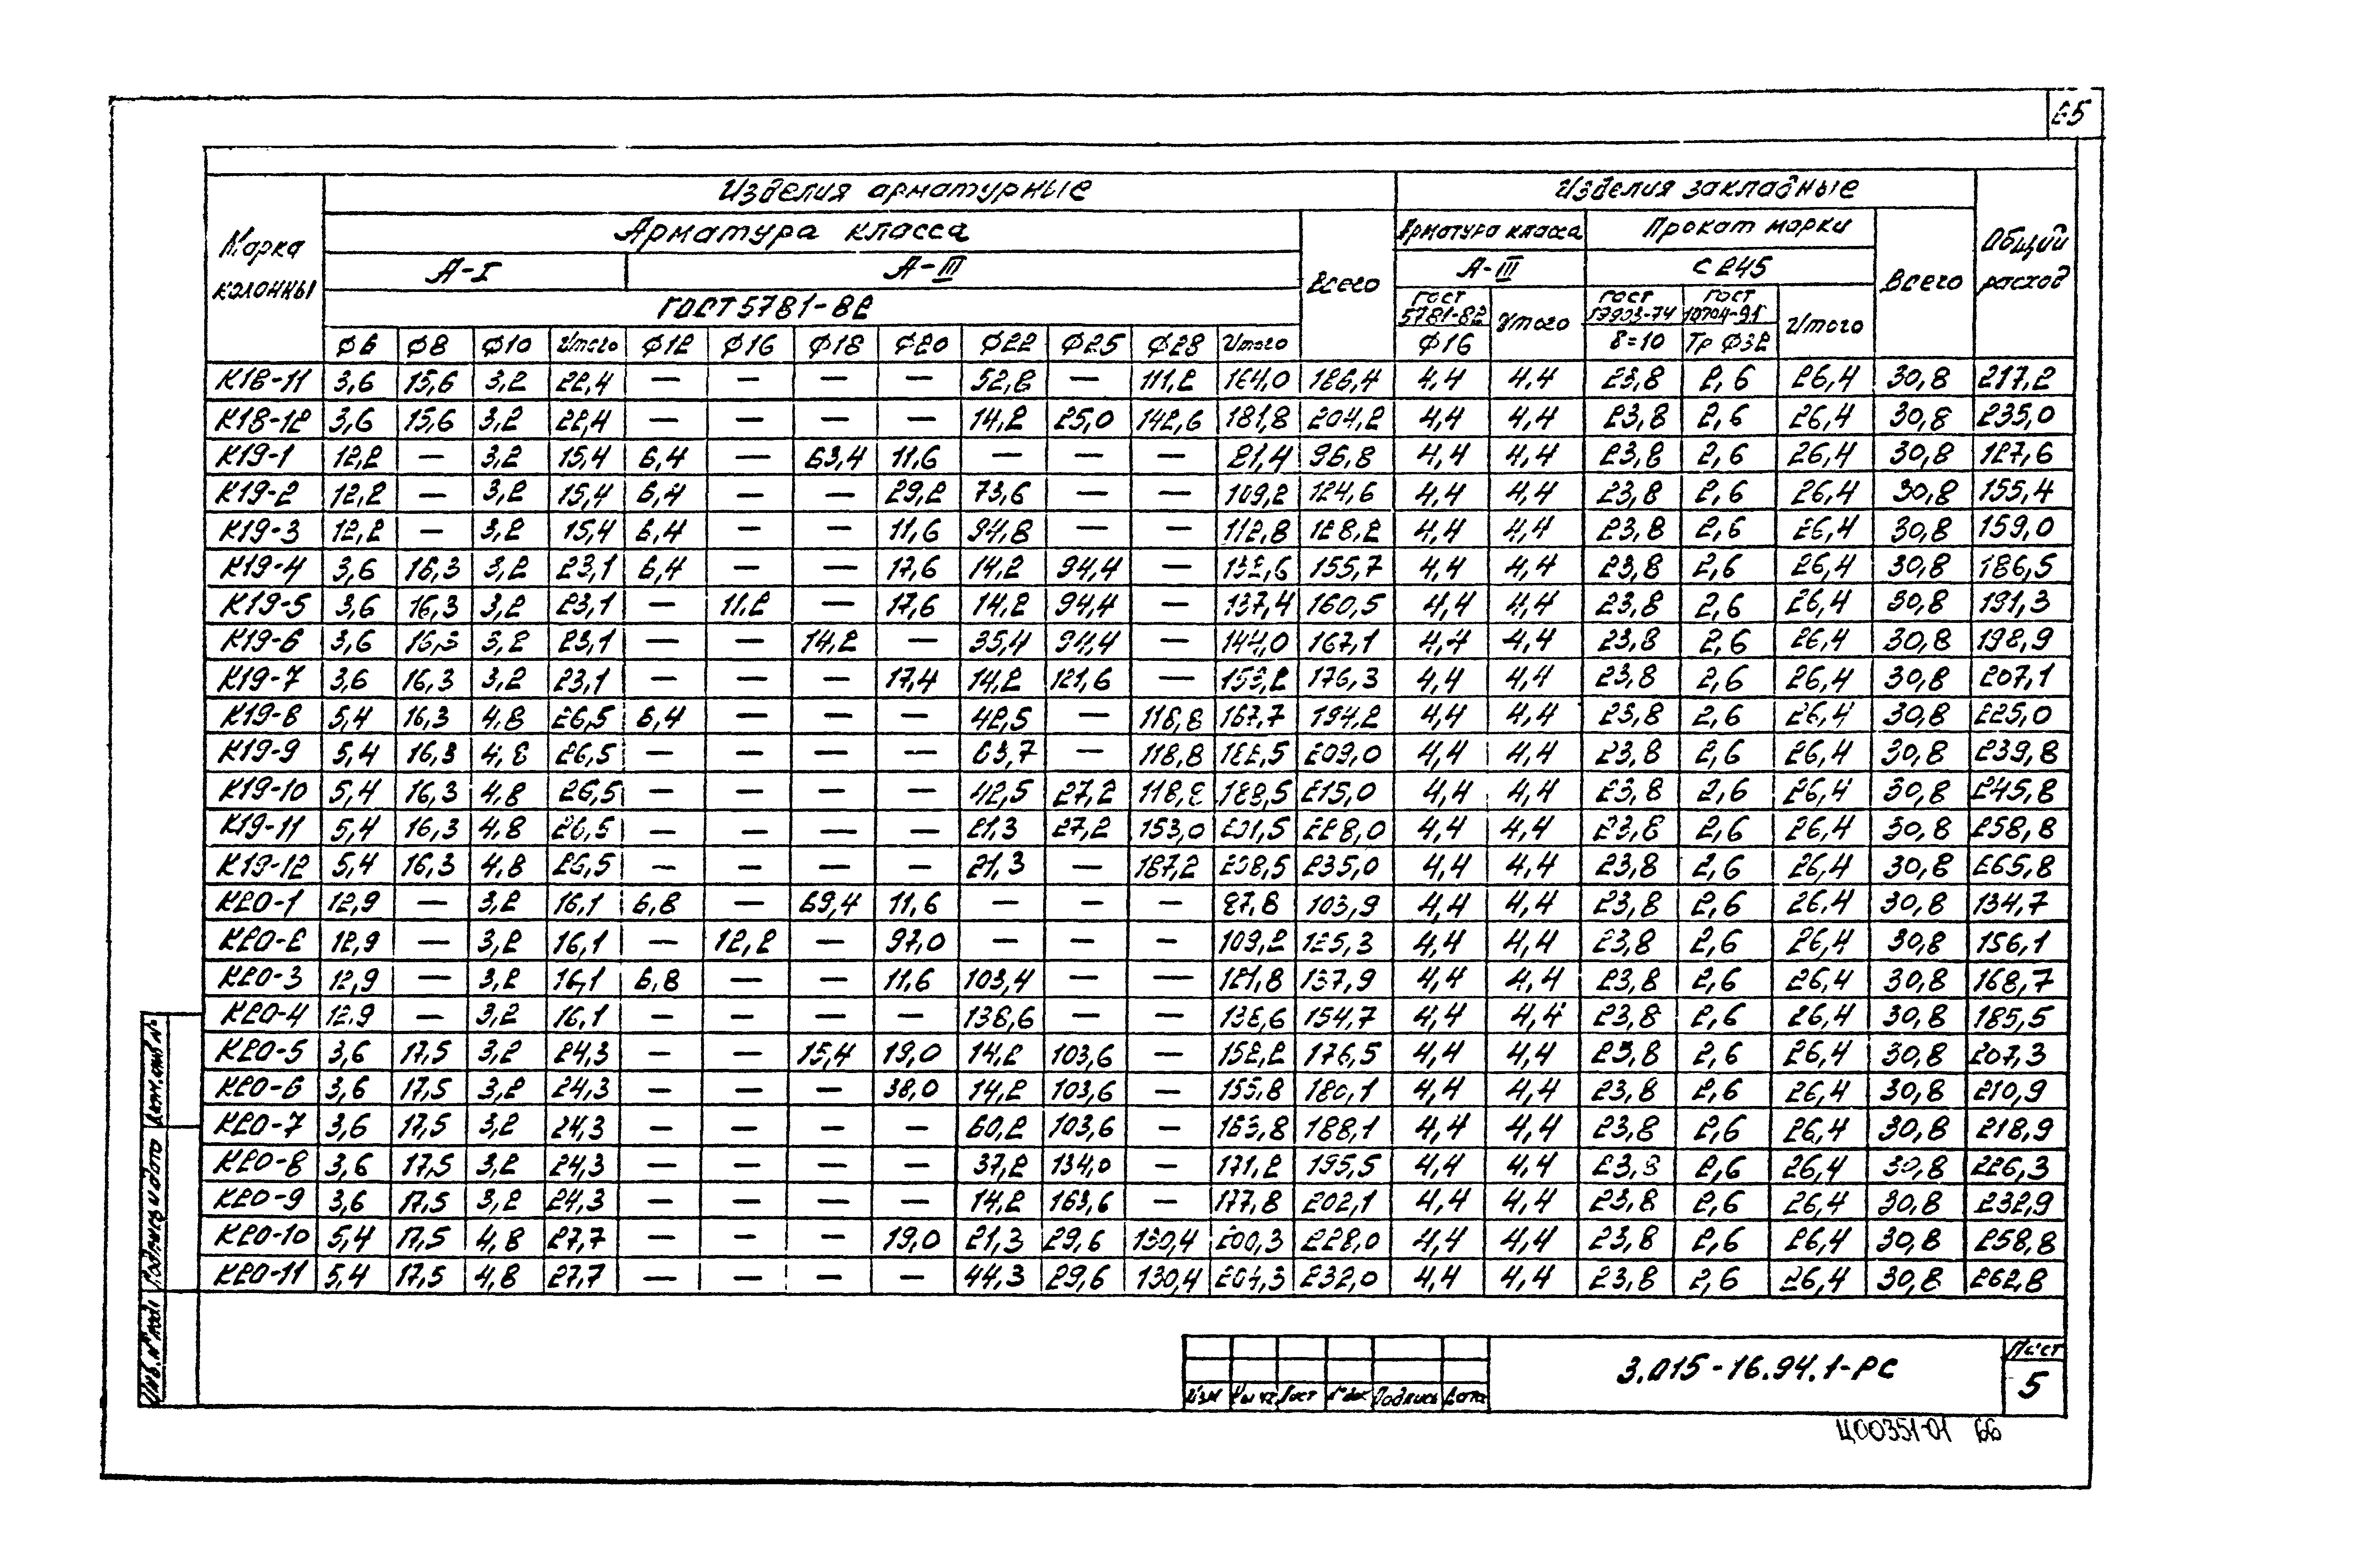 65
Изделия арматурные Изделия закладные
Марка колонны Арматура класса Всего Арматура класса Прокат марки Всего Общий расход
А-I А-III А-III С245
ГОСТ 5781-82 ГОСТ 5781-82 Итого ГОСТ 19903-74 ГОСТ 10704-91 Итого
Ф6 Ф8 Ф10 Итого Ф12 Ф16 Ф18 Ф20 Ф22 Ф25 Ф28 Итого Ф16 δ=10 Тр Ф32
К18-11 3,6 15,6 3,2 22,4 — — — — 52,8 — 111,2 164,0 186,4 4,4 4,4 23,8 2,6 26,4 30,8 217,2
К18-12 3,6 15,6 3,2 22,4 — — — — 14,2 25,0 142,6 181,8 204,2 4,4 4,4 23,8 2,6 26,4 30,8 235,0
К19-1 12,2 — 3,2 15,4 6,4 — 63,4 11,6 — — — 81,4 96,8 4,4 4,4 23,8 2,6 26,4 30,8 127,6
К19-2 12,2 — 3,2 15,4 6,4 — — 29,2 73,6 — — 109,2 124,6 4,4 4,4 23,8 2,6 26,4 30,8 155,4
К19-3 12,2 — 3,2 15,4 6,4 — — 11,6 94,8 — — 112,8 128,2 4,4 4,4 23,8 2,6 26,4 30,8 159,0
К19-4 3,6 16,3 3,2 23,1 6,4 — — 17,6 14,2 94,4 — 132,6 155,7 4,4 4,4 23,8 2,6 26,4 30,8 186,5
К19-5 3,6 16,3 3,2 23,1 — 11,2 — 17,6 14,2 94,4 — 137,4 160,5 4,4 4,4 23,8 2,6 26,4 30,8 191,3
К19-6 3,6 16,3 3,2 23,1 — — 14,2 — 35,4 94,4 — 144,0 167,1 4,4 4,4 23,8 2,6 26,4 30,8 198,9
К19-7 3,6 16,3 3,2 23,1 — — — 17,4 14,2 121,6 — 153,2 176,3 4,4 4,4 23,8 2,6 26,4 30,8 207,1
К19-8 5,4 16,3 4,8 26,5 6,4 — — — 42,5 — 118,8 167,7 194,2 4,4 4,4 23,8 2,6 26,4 30,8 225,0
К19-9 5,4 16,3 4,8 26,5 — — — — 63,7 — 118,8 182,5 209,0 4,4 4,4 23,8 2,6 26,4 30,8 239,8
К19-10 5,4 16,3 4,8 26,5 — — — — 42,5 27,2 118,8 188,5 215,0 4,4 4,4 23,8 2,6 26,4 30,8 245,8
К19-11 5,4 16,3 4,8 26,5 — — — — 21,3 27,2 153,0 201,5 228,0 4,4 4,4 23,8 2,6 26,4 30,8 258,8
К19-12 5,4 16,3 4,8 26,5 — — — — 21,3 — 187,2 208,5 235,0 4,4 4,4 23,8 2,6 26,4 30,8 265,8
К20-1 12,9 — 3,2 16,1 6,8 — 69,4 11,6 — — — 87,8 103,9 4,4 4,4 23,8 2,6 26,4 30,8 134,7
К20-2 12,9 — 3,2 16,1 — 12,2 — 97,0 — — — 109,2 125,3 4,4 4,4 23,8 2,6 26,4 30,8 156,1
К20-3 12,9 — 3,2 16,1 6,8 — — 11,6 103,4 — — 121,8 137,9 4,4 4,4 23,8 2,6 26,4 30,8 168,7
К20-4 12,9 — 3,2 16,1 — — — — 138,6 — — 138,6 154,7 4,4 4,4 23,8 2,6 26,4 30,8 185,5
К20-5 3,6 17,5 3,2 24,3 — — 15,4 19,0 14,2 103,6 — 152,2 176,5 4,4 4,4 23,8 2,6 26,4 30,8 207,3
К20-6 3,6 17,5 3,2 24,3 — — — 38,0 14,2 103,6 — 155,8 180,1 4,4 4,4 23,8 2,6 26,4 30,8 210,9
К20-7 3,6 17,5 3,2 24,3 — — — — 60,2 103,6 — 163,8 188,1 4,4 4,4 23,8 2,6 26,4 30,8 218,9
К20-8 3,6 17,5 3,2 24,3 — — — — 37,2 134,0 — 171,2 195,5 4,4 4,4 23,8 2,6 26,4 30,8 226,3
К20-9 3,6 17,5 3,2 24,3 — — — — 14,2 163,6 — 177,8 202,1 4,4 4,4 23,8 2,6 26,4 30,8 232,9
К20-10 5,4 17,5 4,8 27,7 — — — 19,0 21,3 29,6 130,4 200,3 228,0 4,4 4,4 23,8 2,6 26,4 30,8 258,8
К20-11 5,4 17,5 4,8 27,7 — — — — 44,3 29,6 130,4 204,3 232,0 4,4 4,4 23,8 2,6 26,4 30,8 262,8
Инв. № подл Подпись и дата Взам. инв №
Изм Кол уч Лист № док Подпись Дата
3.015-16.94.1-РС
Лист
5
Ц00351-01 66